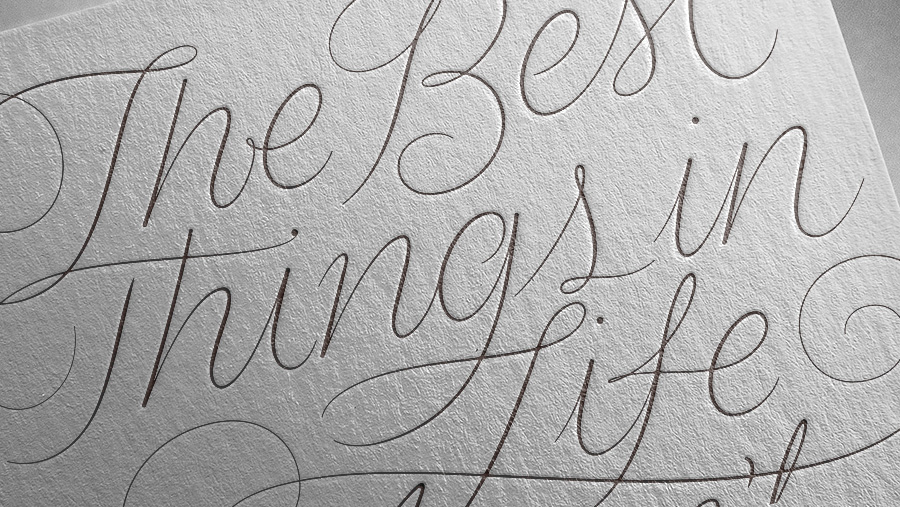 The Best
Things in
Life